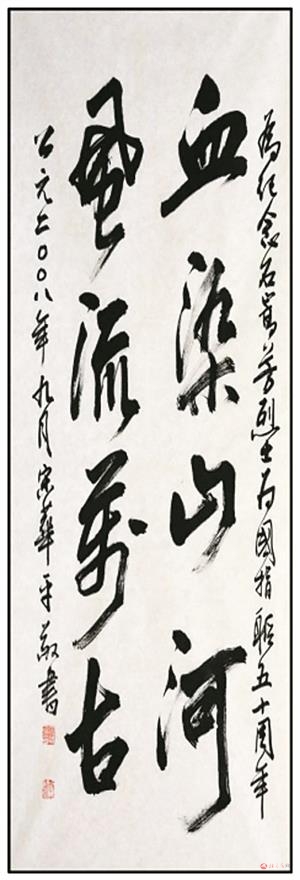 為纪念石芳烈士为國捐躯五十周年
血染山河
風流萬古
公元二〇〇八年九月宋華平敬書